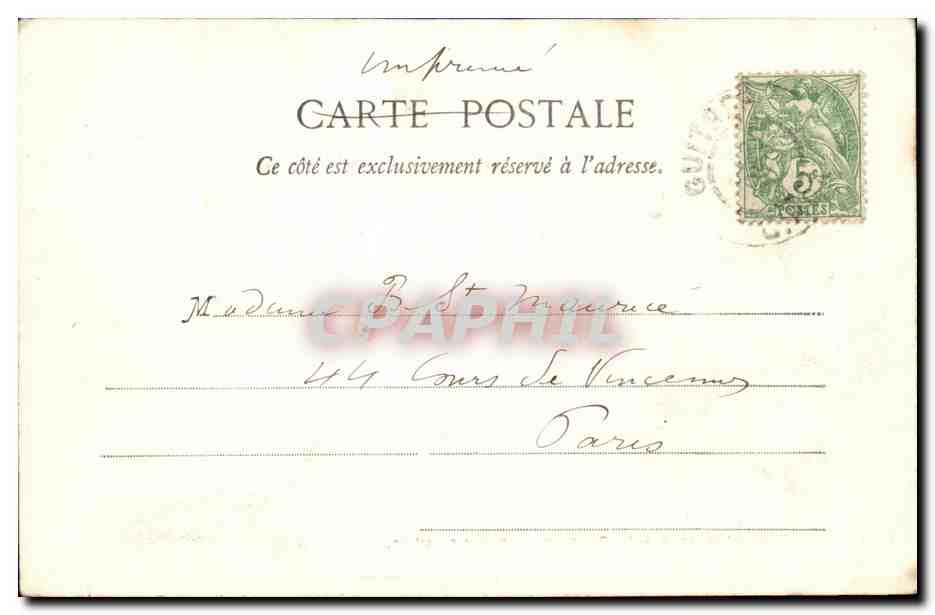 Imprimé
CARTE POSTALE
Ce côté est exclusivement réservé à l'adresse.
5c
POSTES
Madame B. St Maurice
CPAPHIL
44 Cours de Vincennes
Paris